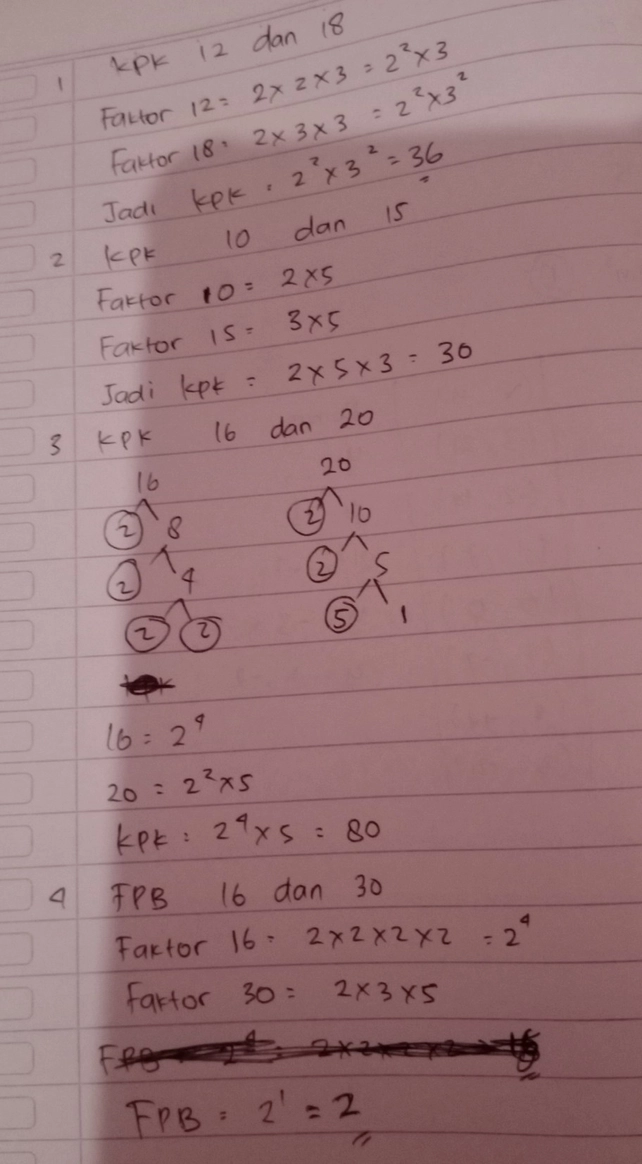 1 KPK 12 dan 18
Faktor 12 = 2 x 2 x 3 = 2² x 3
Faktor 18 = 2 x 3 x 3 = 2² x 3²
Jadi KPK = 2² x 3² = 36
2 KPK 10 dan 15
Faktor 10 = 2 x 5
Faktor 15 = 3 x 5
Jadi KPK = 2 x 5 x 3 = 30
3 KPK 16 dan 20
16 20
2 8 2 10
2 4 2 5
2 2 5 1
16 = 2⁴
20 = 2² x 5
KPK = 2⁴ x 5 = 80
4 FPB 16 dan 30
Faktor 16 = 2 x 2 x 2 x 2 = 2⁴
Faktor 30 = 2 x 3 x 5
FPB = 2¹ = 2